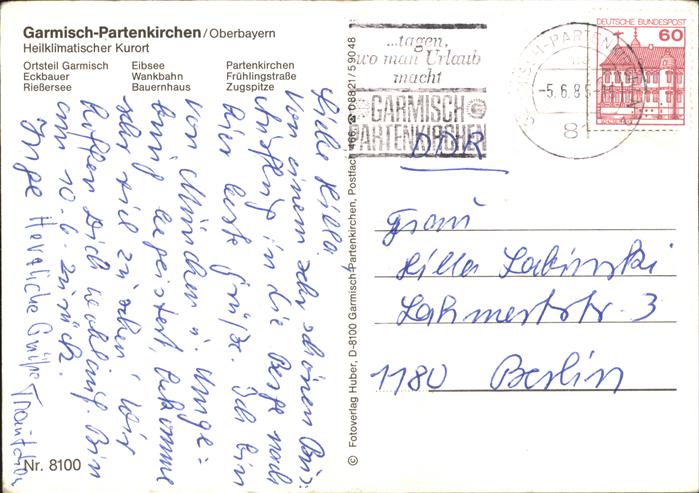 Garmisch-Partenkirchen/Oberbayern
Heilklimatischer Kurort
Ortsteil Garmisch
Eckbauer
Rießersee
Eibsee
Wankbahn
Bauernhaus
Partenkirchen
Frühlingstraße
Zugspitze
Liebe Hilla,
Von einem sehr schönen Aus=
flug in die Berge noch
hier beste Grüße. Ich bin
von München u. Umge=
bung begeistert, bekomme
sehr viel zu sehen! Wir
hoffen Dich wohlauf. Bin
am 10.6. zurück.
Inge Herzliche Grüße
Nr. 8100
© Fotoverlag Huber, D-8100 Garmisch-Partenkirchen, Postfach 466, ☎ 08821/59048
...tagen,
wo man Urlaub
macht
GARMISCH
PARTENKIRCHEN
-5.6.8
81
DEUTSCHE BUNDESPOST
60
DDR
Frau
Hilla Labinski
Lahmertstr. 3
1180 Berlin